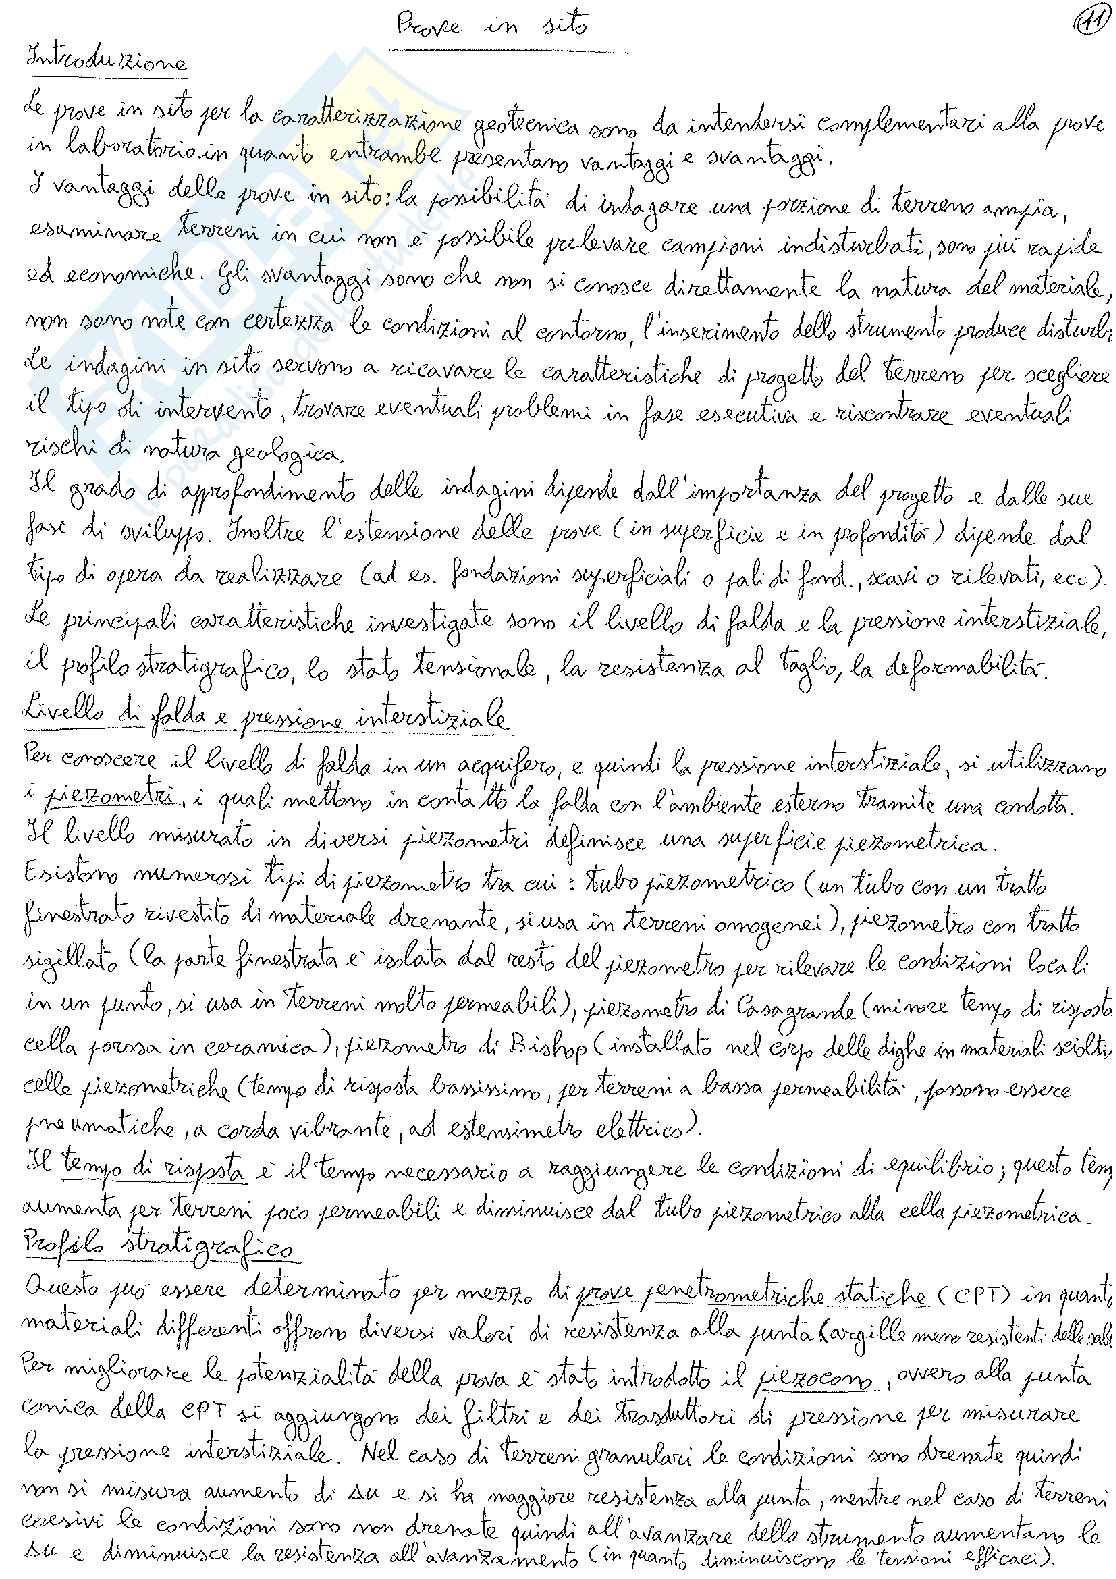 Prove in sito
11
Introduzione
Le prove in sito per la caratterizzazione geotecnica sono da intendersi complementari alla prove
in laboratorio in quanto entrambe presentano vantaggi e svantaggi.
I vantaggi delle prove in sito: la possibilità di indagare una porzione di terreno ampia,
esaminare terreni in cui non è possibile prelevare campioni indisturbati, sono più rapide
ed economiche. Gli svantaggi sono che non si conosce direttamente la natura del materiale,
non sono note con certezza le condizioni al contorno, l'inserimento dello strumento produce disturbi
Le indagini in sito servono a ricavare le caratteristiche di progetto del terreno per scegliere
il tipo di intervento, trovare eventuali problemi in fase esecutiva e riscontrare eventuali
rischi di natura geologica.
Il grado di approfondimento delle indagini dipende dall'importanza del progetto e dalle sue
fasi di sviluppo. Inoltre l'estensione delle prove (in superficie e in profondità) dipende dal
tipo di opera da realizzare (ad es. fondazioni superficiali o pali di fond., scavi o rilevati, ecc).
Le principali caratteristiche investigate sono il livello di falda e la pressione interstiziale,
il profilo stratigrafico, lo stato tensionale, la resistenza al taglio, la deformabilità.
Livello di falda e pressione interstiziale
Per conoscere il livello di falda in un acquifero, e quindi la pressione interstiziale, si utilizzano
i piezometri, i quali mettono in contatto la falda con l'ambiente esterno tramite una condotta.
Il livello misurato in diversi piezometri definisce una superficie piezometrica.
Esistono numerosi tipi di piezometro tra cui: tubo piezometrico (un tubo con un tratto
finestrato rivestito di materiale drenante, si usa in terreni omogenei), piezometro con tratto
sigillato (la parte finestrata è isolata dal resto del piezometro per rilevare le condizioni locali
in un punto, si usa in terreni molto permeabili), piezometro di Casagrande (minore tempo di risposta
cella porosa in ceramica), piezometro di Bishop (installato nel corpo delle dighe in materiali sciolti
celle piezometriche (tempo di risposta bassissimo, per terreni a bassa permeabilità, possono essere
pneumatiche, a corda vibrante, ad estensimetro elettrico).
Il tempo di risposta è il tempo necessario a raggiungere le condizioni di equilibrio; questo tem
aumenta per terreni poco permeabili e diminuisce dal tubo piezometrico alla cella piezometrica.
Profilo stratigrafico
Questo può essere determinato per mezzo di prove penetrometriche statiche (CPT) in quanto
materiali differenti offrono diversi valori di resistenza alla punta (argille meno resistenti delle sab
Per migliorare le potenzialità della prova è stato introdotto il piezocono, ovvero alla punta
conica della CPT si aggiungono dei filtri e dei trasduttori di pressione per misurare
la pressione interstiziale. Nel caso di terreni granulari le condizioni sono drenate quindi
non si misura aumento di Δu e si ha maggiore resistenza alla punta, mentre nel caso di terreni
coesivi le condizioni sono non drenate quindi all'avanzare dello strumento aumentano le
Δu e diminuisce la resistenza all'avanzamento (in quanto diminuiscono le tensioni efficaci).